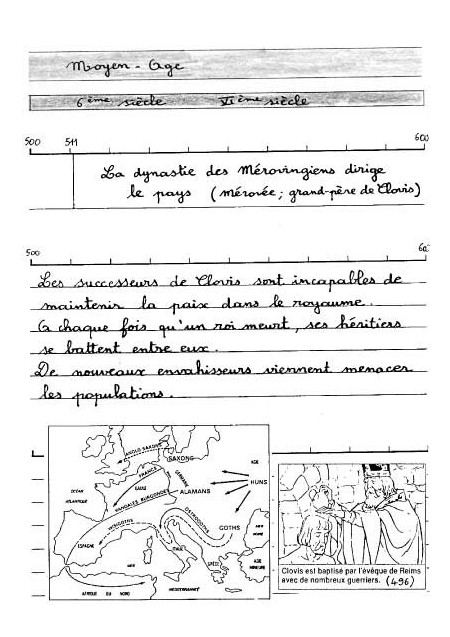 Moyen-Age
6ème siècle VIème siècle
500 511 600
La dynastie des Mérovingiens dirige
le pays (Mérovée; grand-père de Clovis)
500
Les successeurs de Clovis sont incapables de
maintenir la paix dans le royaume.
A chaque fois qu'un roi meurt, ses héritiers
se battent entre eux.
De nouveaux envahisseurs viennent menacer
les populations.
ANGLO SAXONS
SAXONS
FRANCS
GERMANIE
ASIE
HUNS
OCÉAN
ATLANTIQUE
GAULE
ALAMANS
VANDALES BURGONDES
WISIGOTHS
OSTROGOTHS
GOTHS
MER
NOIRE
ESPAGNE
ITALIE
GRÈCE
ASIE
MINEURE
MER
MEDITERRANÉE
AFRIQUE DU NORD
Clovis est baptisé par l'évêque de Reims
avec de nombreux guerriers. (496)